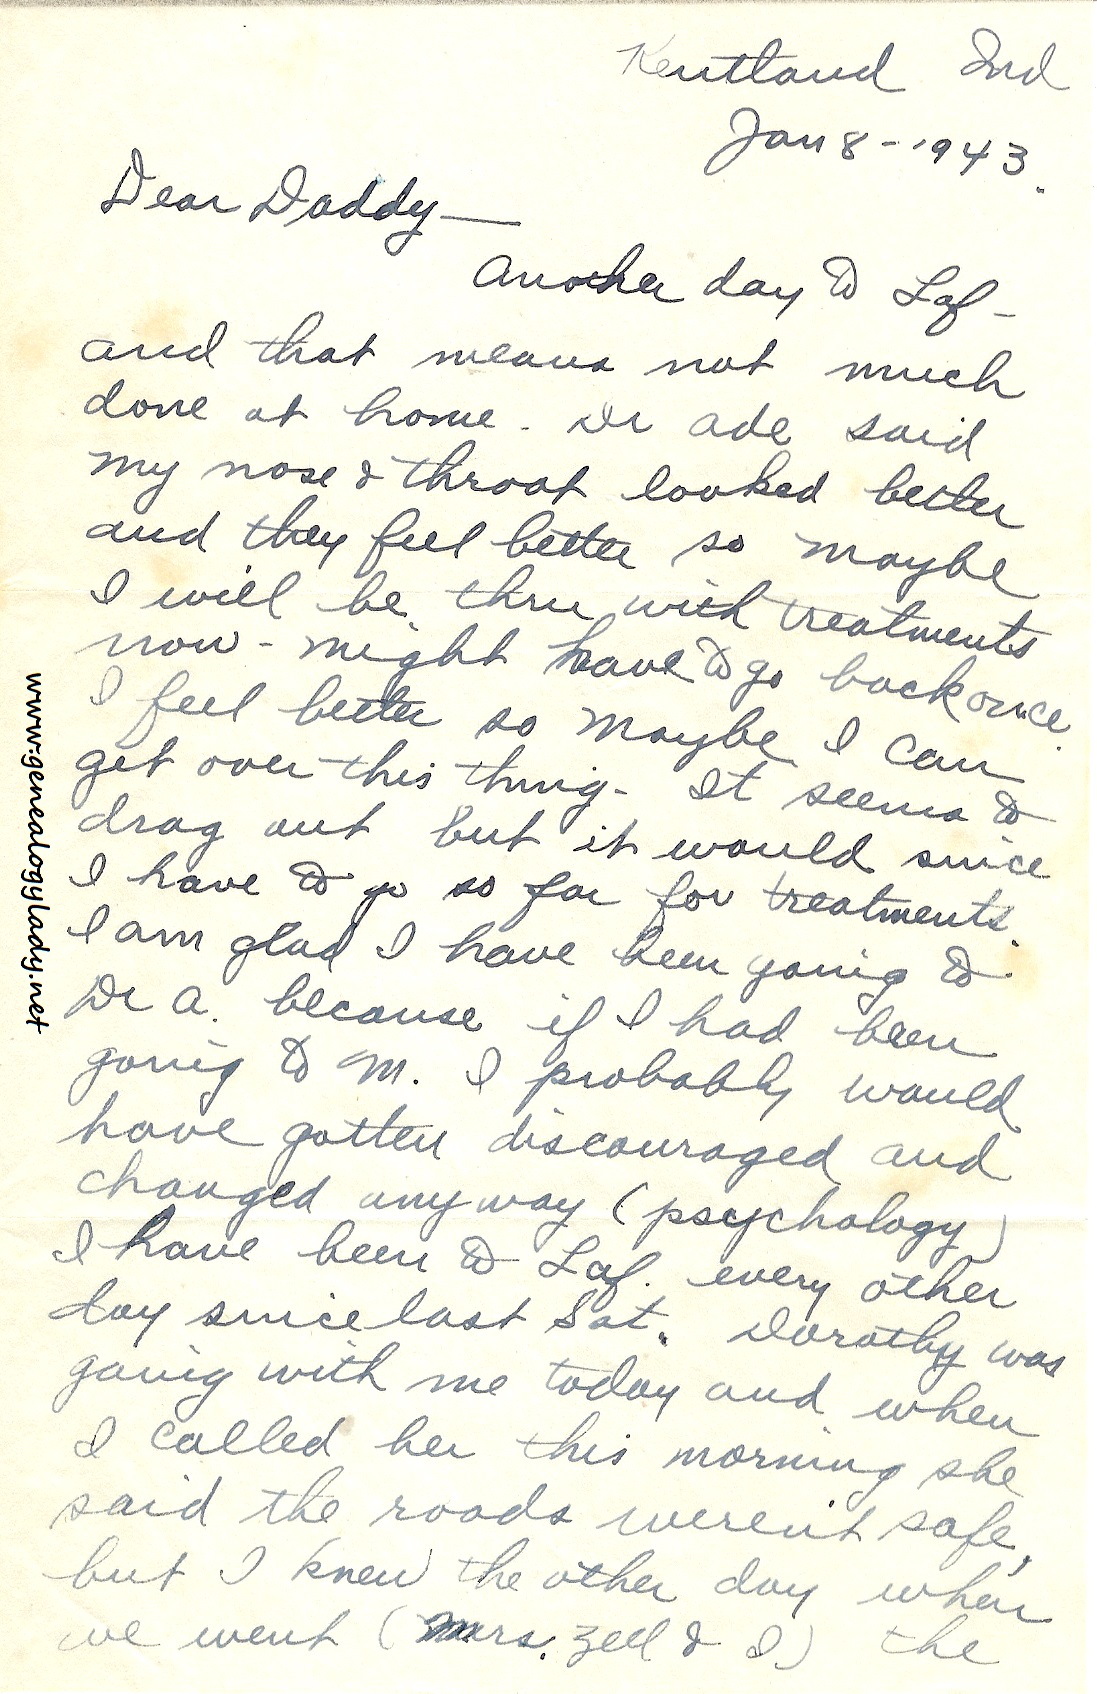 Kentland Ind
Jan 8 - 1943.
Dear Daddy —
Another day to Laf -
and that means not much
done at home. Dr Ade said
my nose & throat looked better
and they feel better so maybe
I will be thru with treatments
now - might have to go back once.
I feel better so maybe I can
get over this thing - It seems to
drag out but it would since
I have to go so far for treatments.
I am glad I have been going to
Dr A. because if I had been
going to M. I probably would
have gotten discouraged and
changed anyway (psychology)
I have been to Laf. every other
day since last Sat. Dorothy was
going with me today and when
I called her this morning she
said the roads weren't safe,
but I knew the other day when
we went (Mrs. Zell & I) the
www.genealogylady.net